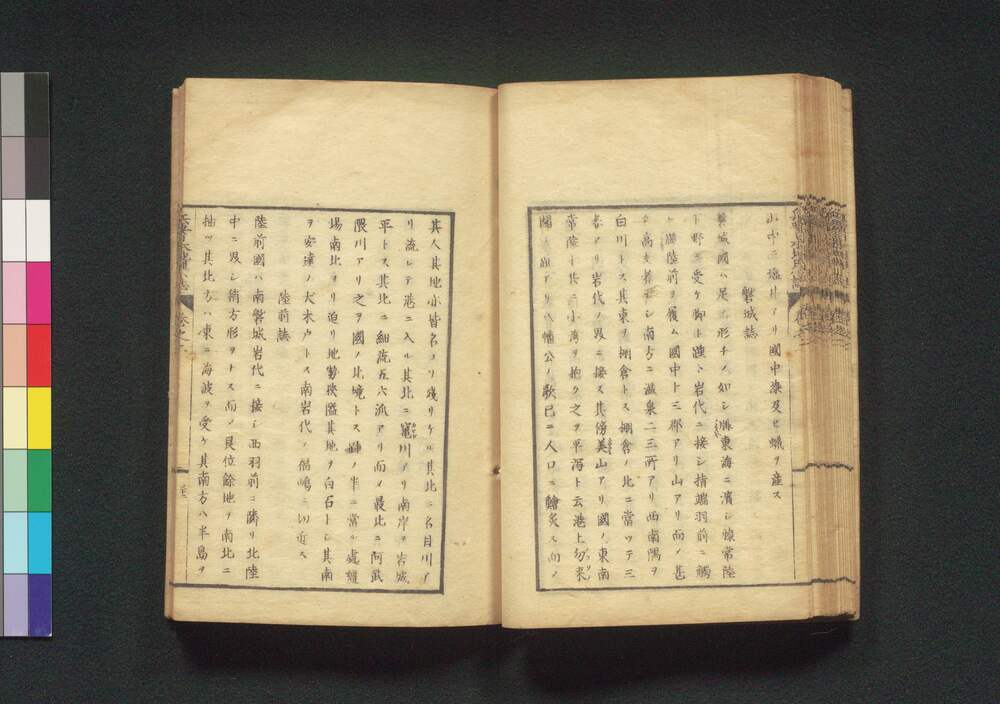 小中ニ塩井アリ國中漆及ヒ蝋ヲ産ス
磐城誌
磐城國ハ足ノ形チノ如シ腓東海ニ濱シ膝常陸
下野ニ受ケ 岩代ニ接シ指端羽前ニ觸
陸前ヲ履ム國中十三郡アリ山アリ而ノ甚
高大者ナシ南方ニ温泉二三所アリ西南隅ヲ
白川トス其東ヲ棚倉トス棚倉ノ北ニ當ツテ三
春アリ岩代ノ界ニ接ス其傍美山アリ國ノ東南
常陸ト共ニ小湾ヲ抱ク之ヲ平海ト云港上勿来
關ノ趾アリ八幡公ノ歌已ニ人口ニ鱠炙ス而ノ
其人其地亦皆名ノリ残リケル其北ニ名目川ア
リ流レテ港ニ入ル其北ニ竈川アリ南岸ヲ岩城
平トス其北ニ細流五六流アリ而ノ最北ニ阿武
隈川アリ之ヲ國ノ北境トス 半ニ當ル處疆
場南北ヨリ迫リ地勢狹隘其地ヲ白石トシ其南
ヲ安達ノ大木戸トス南岩代ノ福嶋ニ近ス
陸前誌
陸前國ハ南磐城岩代ニ接シ西羽前ニ隣リ北陸
中ニ界シ稍方形ヲトス而ノ艮位餘地ヲ南北ニ
抽ツ其北方ハ東ニ海波ヲ受ケ其南方ハ半島ヲ